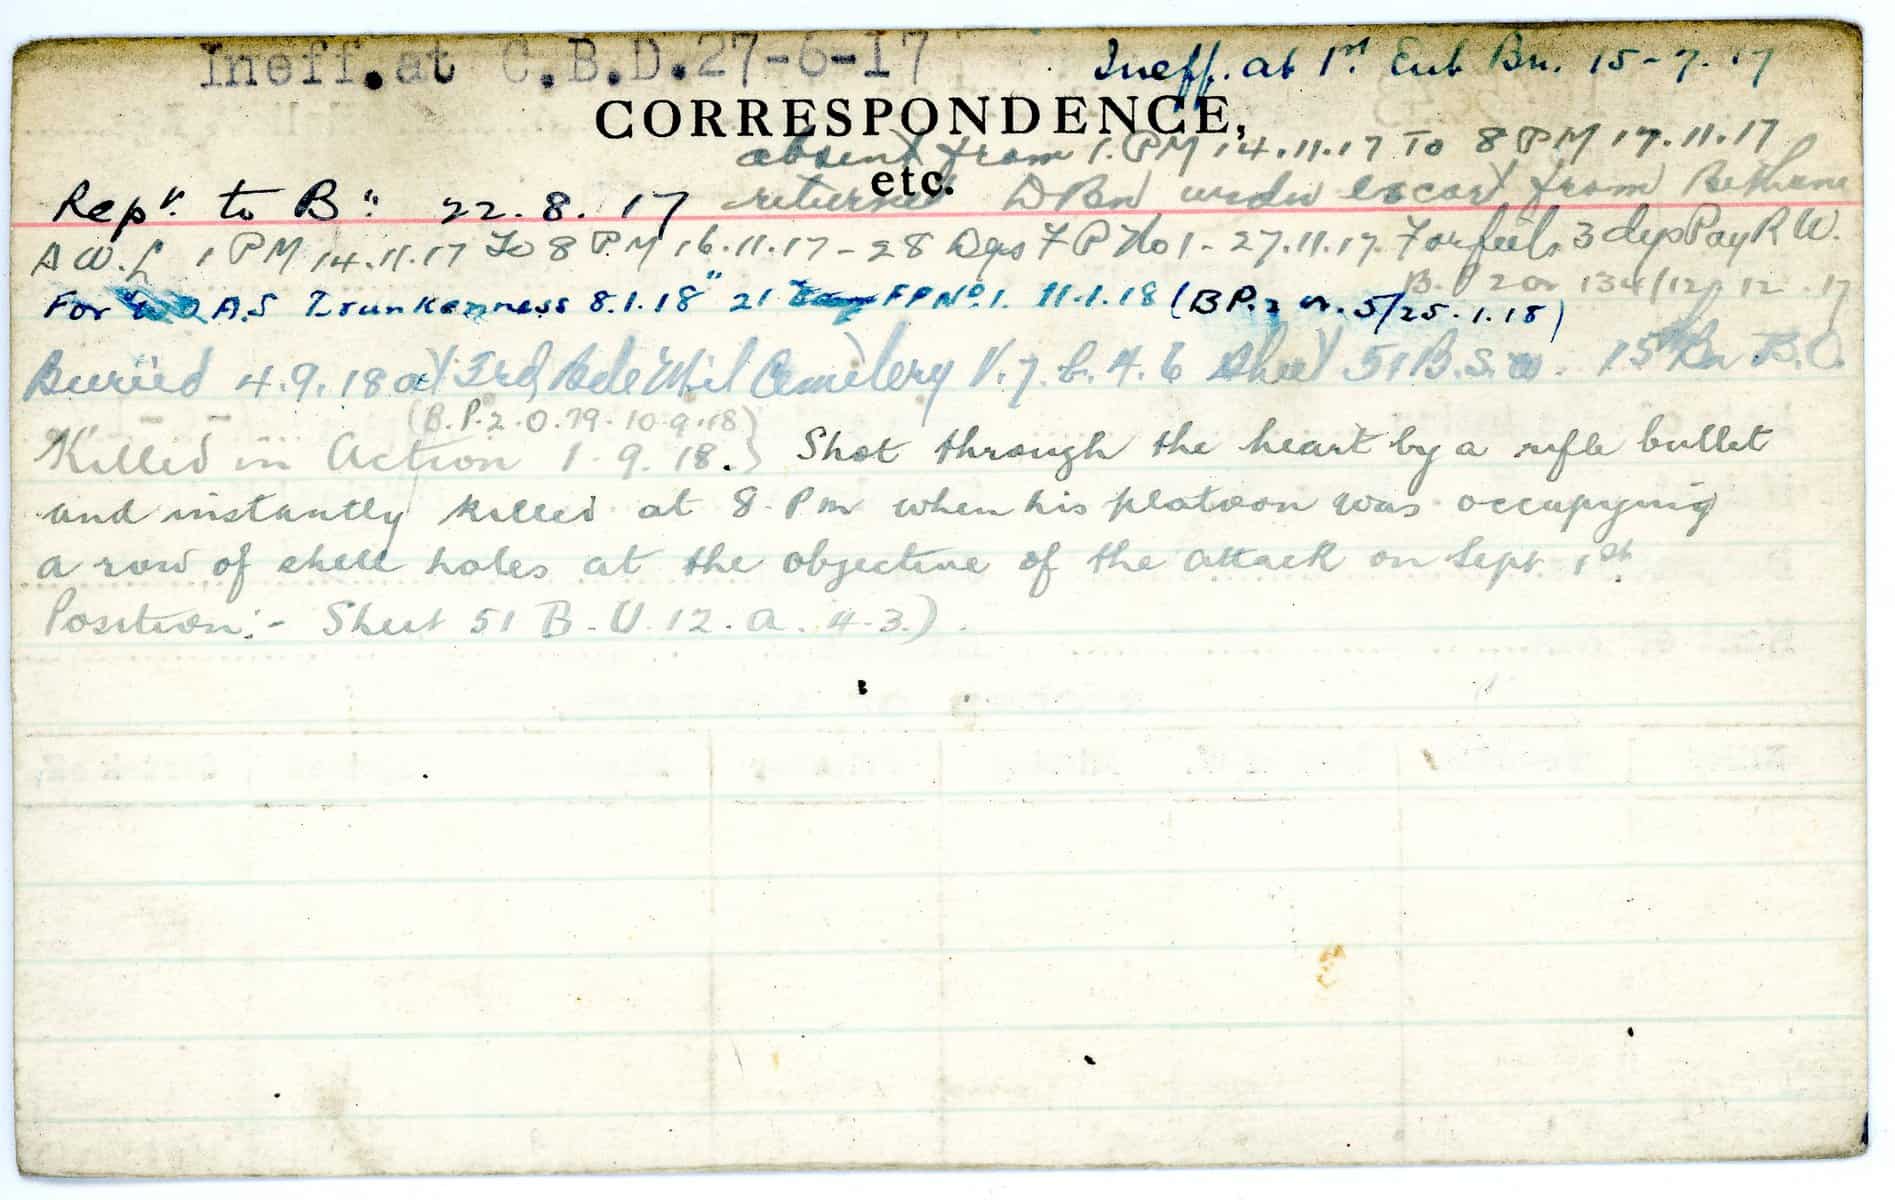 Ineff. at C.B.D. 27-6-17
Ineff. at 1st Ent Bn. 15-7-17
CORRESPONDENCE,
etc.
absent from 1. PM 14.11.17 To 8 PM 17.11.17
returned Bn under escort from Bethune
Repd. to Bn: 22.8.17
A W.L 1 PM 14.11.17 To 8 P.M 16.11.17 - 28 Dys F P No 1 - 27.11.17. Forfeits 3 dys Pay R W.
B.P 2 or 134/12.12.17
For A.S Drunkenness 8.1.18" 21 F P No. 1. 11.1.18 (B P. 2 or. 5/25.1.18)
Buried 4.9.18 at Mil Cemetery V. 7. b. 4. 6 Sheet 51 B. S.W. 15th Bn B.O.
(B.P.2.O.79. 10.9.18)
Killed in Action 1.9.18.} Shot through the heart by a rifle bullet
and instantly killed at 8. Pm when his platoon was occupying
a row of shell holes at the objective of the attack on Sept. 1st.
Position:- Sheet 51 B. U. 12. a. 4-3.).